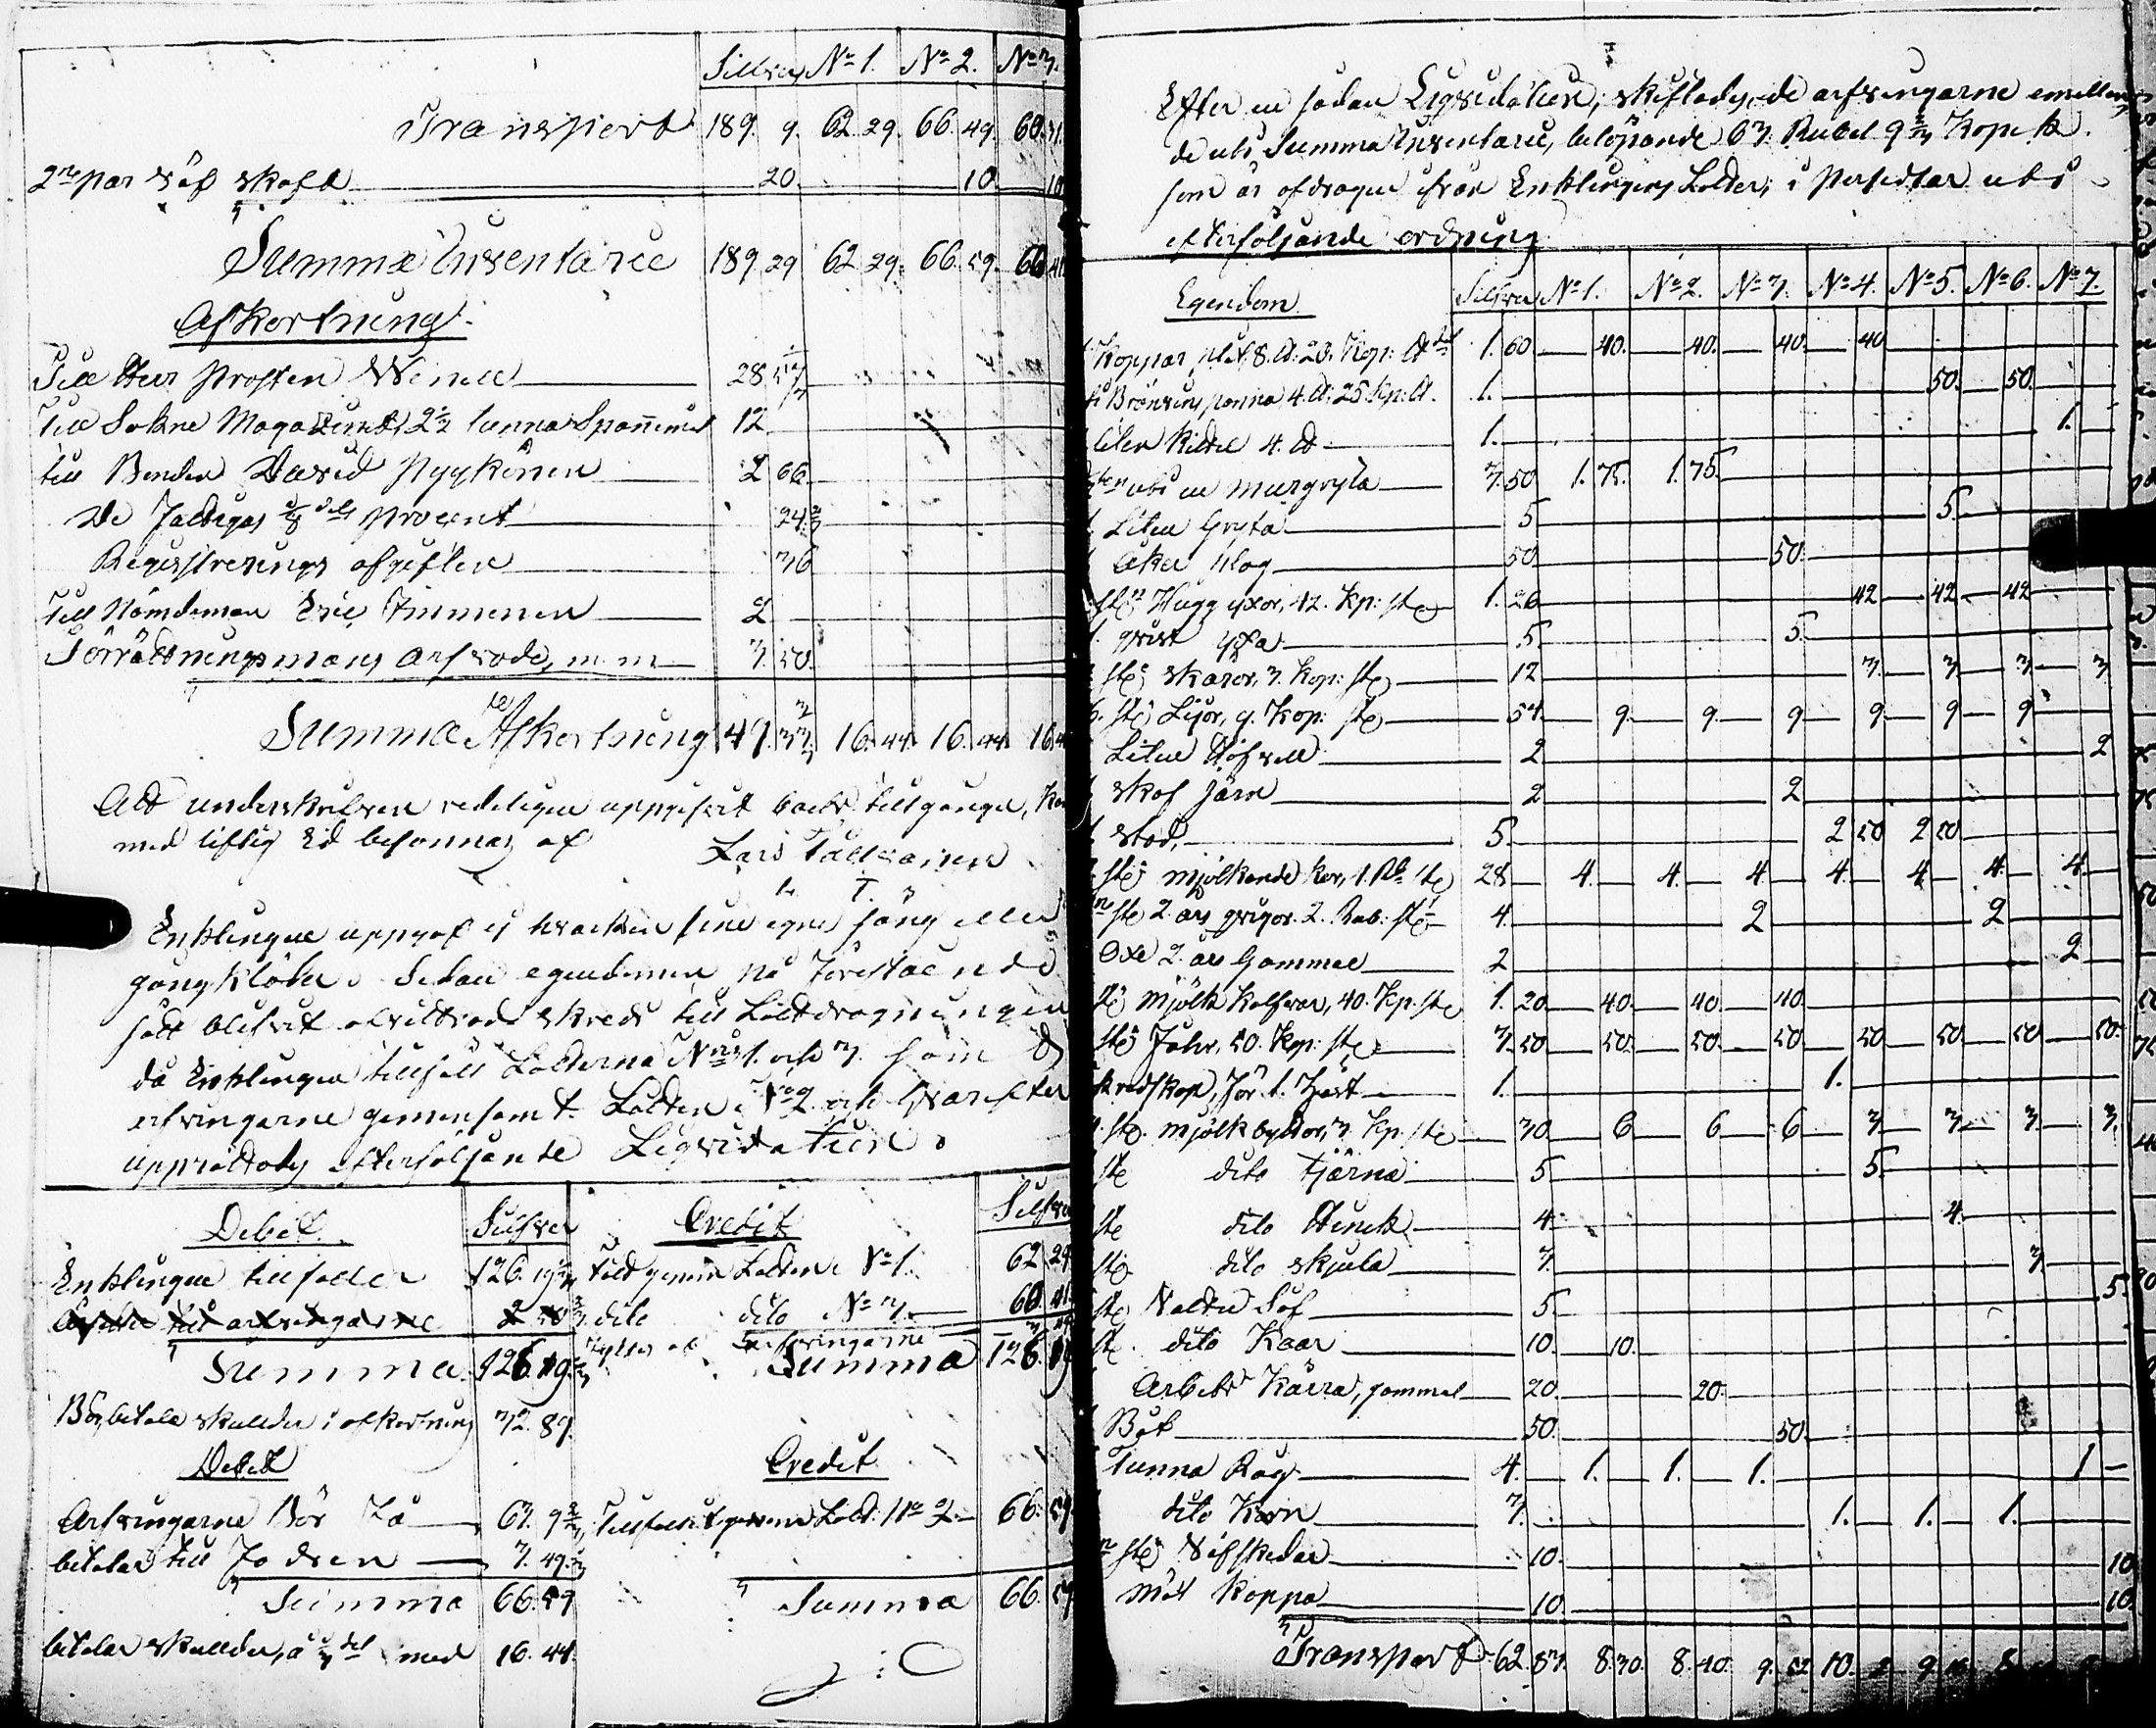 Silfver No 1. No 2. No 3.
Transport 189. 9. 62. 29. 66. 49. 60. 31.
2ne par 20. 10. 10
Summa Inventarie 189. 29 62. 29. 66. 59. 60. 41
Afkortning.
Till Herr Prosten 28
Till Sokne Magazinet, 2½ tunna Spannemål 12
till Bonden David Pyykönen 2 66.
De Fattigas 1/8 dels procent 24.
Registrerings afgiften 36
Till Nämdeman Eric Immonen 2
Förrättningsmans arfvode, m. m. 3. 50.
Summa Afkortning 47. 16. 44. 16. 44. 16
Att underskrifven redeligen uppgifvit boets tillgångar, kan
med liflig Ed besannas af Lars
Enklingen uppgaf ej hvarken sine egne säng eller
gångkläder. Sedan egendomen på förestående
sätt blifvit skreds till Lottdragningen
då Enklingen tillföll Lotterna No 1. och 3. som
arfvingarne gemensamt Lotten No 2. och hvarefter
upprättades efterföljande Liqvidation:
Debet. Silfver Credit Silfver
Enklingen tillfaller 126. 19 genom Lotten No 1. 62 29
till arfvingarne dito dito No 3. 60. 41.
af arfvingarne
Summa 126. 19. Summa 126. 19
Bör betala skulder i afkortning 32. 89.
Debet Credit
Arfvingarne Bör Få 63. 9 Tillfallit genom Lott: No 2. 66. 59
betalar till Fadren 3. 49.
Summa 66. 59 Summa 66. 59
betalar skulder, a 1/3 del med 16. 44.
Efter en sådan Liqvidation, skiftades de arfvingarne emellan,
de uti Summa Inventarie, belöpande 63. Rubel 9 2/3 Kopek
som är afdragen ifrån Enklingens Lotter, i Persedlar uti
efterföljande ordning
Egendom Silfver No 1. No 2. No 3. No 4. No 5. No 6. No 7.
Koppar 8. 20. Kop: 1. 60. 40. 40. 40. 40
Bränvins panna 4. 25 Kp: 1. 50. 50.
liten Kittel 4. 1. 1.
uti en murgryta 3. 50 1. 75. 1. 75.
Liten Gryta 5 5.
Åker plog 50. 50.
Hugg yxor, 42. Kp: st 1. 26 42 42 42
yxa 5. 5.
st skäror, 3. Kop: st 12 3. 3. 3 3
st Lijor, 9. Kop: st 54. 9. 9. 9 9. 9 9
Liten 2 2
skaf järn 2 2
stod, 5. 2 50 2 50
st mjölkande kor, 4. Rb st 28 4. 4. 4 4. 4 4. 4.
st 2. års qvigor. 2. Rub: st 4. 2 2
Oxe 2. års Gammal 2 2.
st mjölk Kalfvar, 40. Kp. st 1. 20 40. 40. 40.
st Fåhr, 50. Kop: st 3. 50 50. 50. 50 50 50. 50 50.
redskap, för 1. Häst 1. 1.
st. mjölk byttor, 3. Kp. st 30 6 6 6 3 3 3 3.
st dito tjärna 5 5.
st dito 4. 4.
st dito skjula 3. 3
st 5. 5.
st. dito Kaar 10. 10.
Arbets Kärra, gammal 20. 20.
Båt 50. 50.
Tunna Råg 4. 1. 1. 1. 1
dito Korn 3. 1. 1. 1.
st 10. 10
Mät koppa 10. 10.
Transport 62. 53. 8. 30. 8. 40. 9. 10. 9.